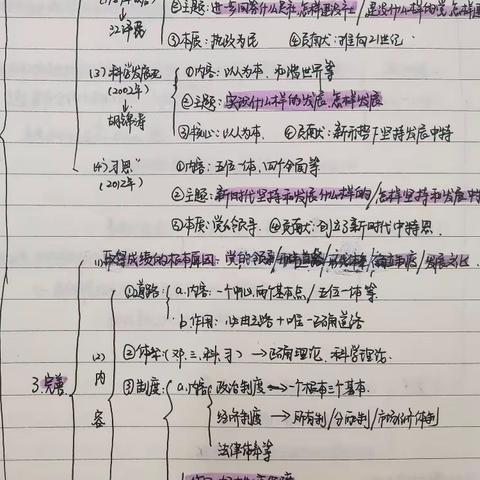 ②主题:进一步回答什么是社、怎样建设社/建设什么样的党、怎样建
江泽民
③本质:执政为民 ④贡献:推向21世纪.
(3)科学发展观 ①内容:以人为本、和谐世界等
(2002年)
②主题:实现什么样的发展、怎样发展
胡锦涛
③核心:以人为本. ④贡献:新形势下坚持发展中特
(4)习思" ①内容:五位一体、四个全面等
(2012年)
②主题:新时代坚持和发展什么样的/怎样坚持和发展中特
③本质:党的领导. ④贡献:到达了新时代中特思.
(1)取得成绩的根本原因:党的领导/
①道路 a.内容:一个中心、两个基本点/五位一体等.
b.作用:必由之路+唯一正确道路
(2) ②体系(邓、三、科、习)→正确理论、科学理论.
3.完善 内容 ③制度: a.内容 政治制度→一个根本三个基本.
经济制度→所有制/分配制/市场经济体制
法律体系等